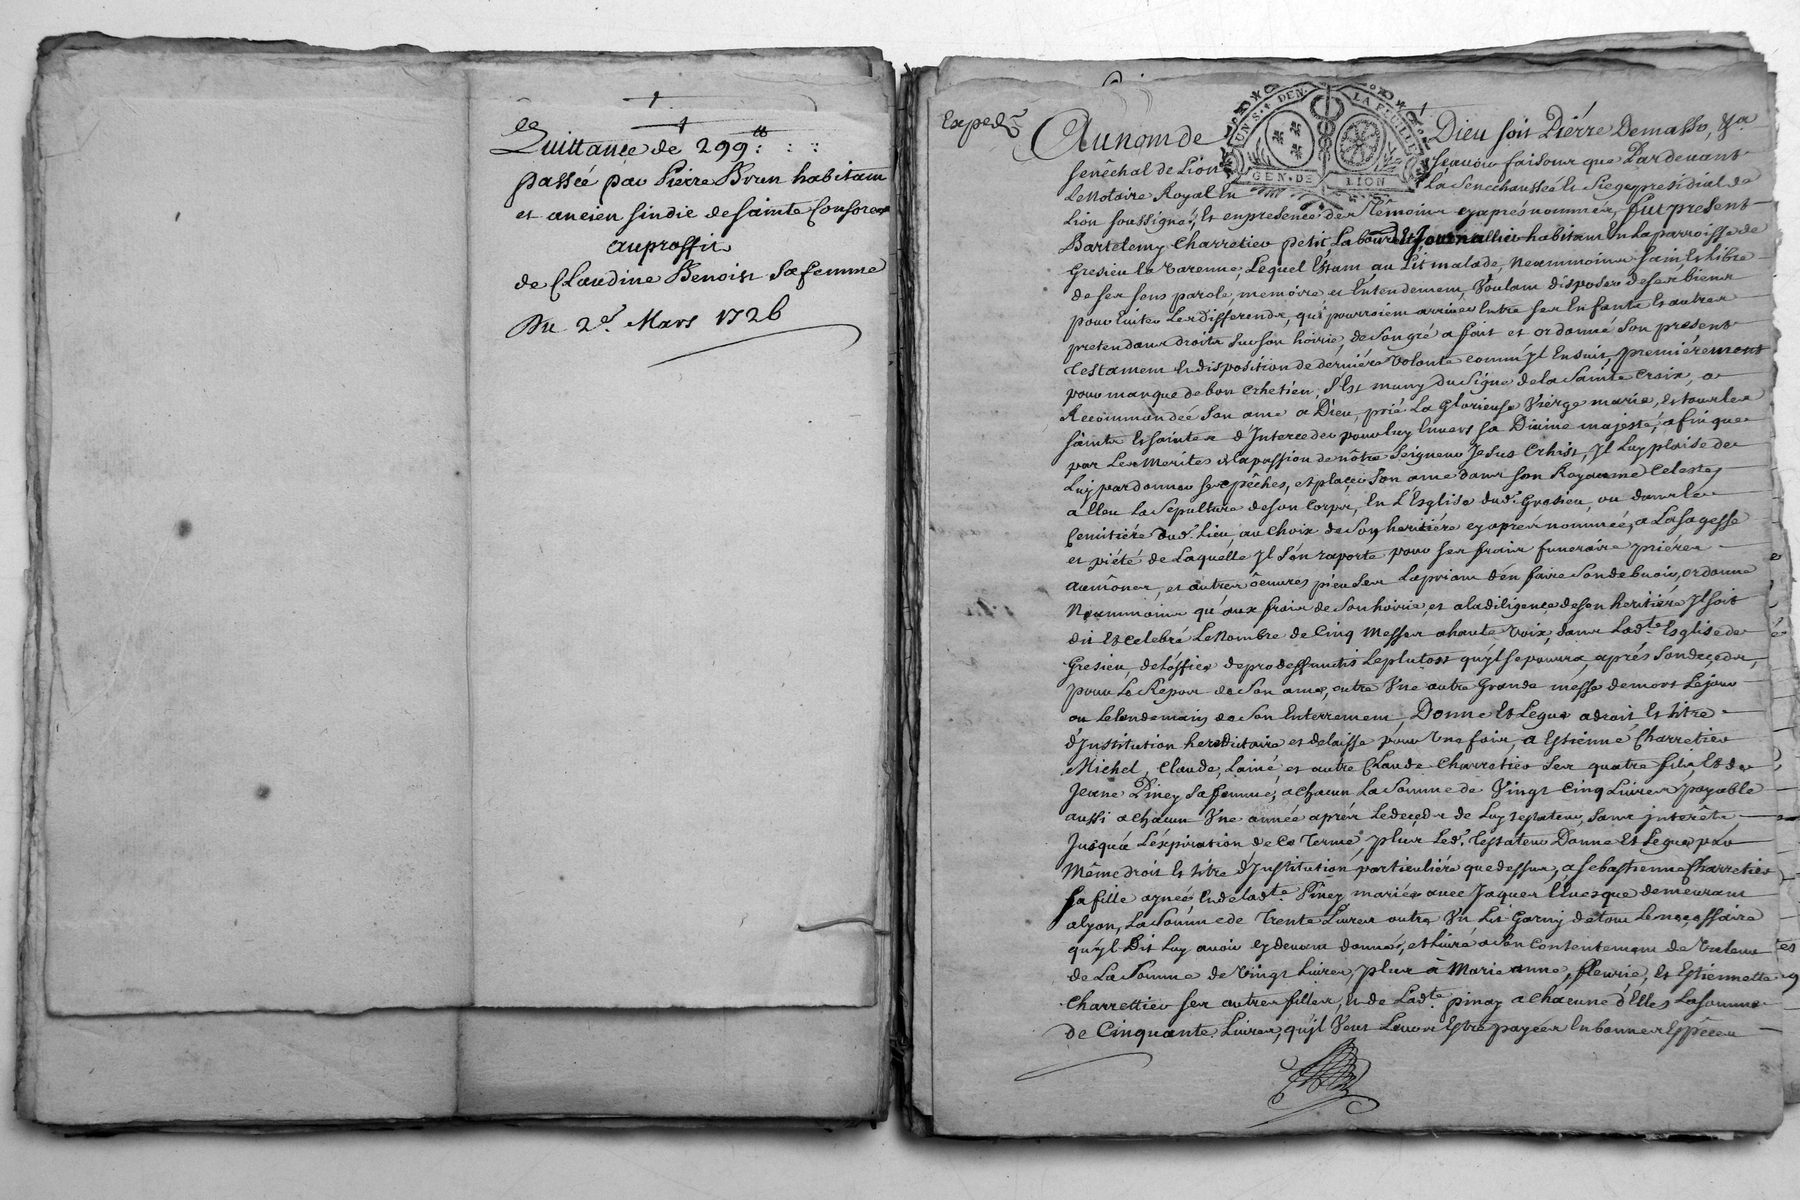 Quittance de 299 ₶
passée par Pierre Brun habitant
et ancien sindic de sainte Consorce
au proffit
de Claudine Benoist sa femme
Du 2e. Mars 1726
Exped.
UN S. 4 DEN. LA FEUILLE
GEN. DE LION
Au nom de Dieu soit Pierre Demasso, Sr.
senéchal de Lion scavoir faisons que Pardevant
Le Notaire Royal En La Senéchaussée Et Siege presidial de
Lion soussigné, Et en presence des Témoins cyaprés nommés, fut present
Bartelemy Charretier petit Laboureur Journallier habitant En La parroisse de
Gresieu la varenne, Lequel Estant au Lit malade, Neammoins sain Et Libre
de ses sens parole, memoire et Entendement, Voulant disposer de ses biens
pour Eviter Les differends, qui pourroient arriver Entre ses Enfants Et autres
pretendans droits sur son hoirie, de son gré a fait et ordonné Son present
Testament Et disposition de derniére Volonté comm'jl Ensuit, premiérement
pour marque de bon Chretien, s'Est muny du Signe de la Sainte Croix, a
Recommandée Son ame a Dieu, prié La Glorieuse Vierge marie, et tous les
saints Et saintes d'Interceder pour luy Envers sa Divine majesté, afin que
par Les Merites et la passion de nôtre Seigneur Jesus Chist, Jl Luy plaise de
Luy pardonner ses pêches, et placer Son ame dans son Royaume Celeste,
a Eleu La Sépulture de son Corps, En L'Esglise dud. Gresieu, ou dans le
Cemitiére dud. Lieu, au choix de Son heritiére cyaprés nommée, a La sagesse
et piété de Laquelle Jl S'en raporte pour ses frais funeraire priéres
aumônes, et autres oêuvres pieuses La priant d'en faire Son debvoir, ordonne
Neammoins qu'aux frais de Son hoirie, et a la diligence de son heritiére Jl soit
dit Et celebré Le Nombre de Cinq Messes a haute Voix, dans Ladte. Esglise de
Gresieu, de L'office de pro deffunctis Le plutost qu'jl se pourra, aprés Son decedz,
pour Le Repos de Son ame, outre Une autre Grande messe de mors Le jour
ou Le lendemain de Son Enterrement, Donne Et Legue a droit Et titre
d'Jnstitution hereditaire et delaisse pour Une fois, a Estienne Charretier
Michel, Claude, Lainé, et autre Claude Charretier Ses quatre fils, Et de
Jeane Piney Sa femme, a chacun La Somme de Vingt Cinq Livres, payable
aussi a chacun Une année aprés Le decedz de Luy Testateur, Sans jnterêts,
Jusqu'a L'éxpiration de Ce Terme, plus Led. Testateur Donne Et Legue par
Même droit Et titre d'Jnstitution particuliére que dessus, a Sebastienne Charretier
sa fille aynée Et de Ladte. Piney, mariée avec Jaques Evesque demeurant
a lyon, La Somme de Trente Livres outre Un Lit Garny de tout Le necessaire
qu'jl Dit Luy avoir cy devant donné, et Livré a Son Contentement de Valeur
de La Somme de Vingt Livres, plus à Marie anne, fleurie, Et Estiennette
Charrettier ses autres filles, Et de Ladte. piney a chacune d'Elles La somme
de Cinquante Livres, qu'jl Veut Leur Estre payées En bonnes Espéces